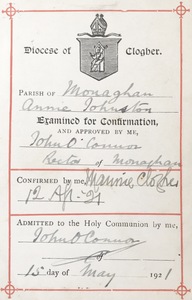 Diocese of Clogher.
PARISH OF Monaghan
Annie Johnston
Examined for Confirmation,
AND APPROVED BY ME,
John O'Connor
Rector of Monaghan
CONFIRMED BY ME, Maurice Clogher
12 Apr. 21
ADMITTED TO THE HOLY COMMUNION BY ME,
John O'Connor
15 day of May 1921